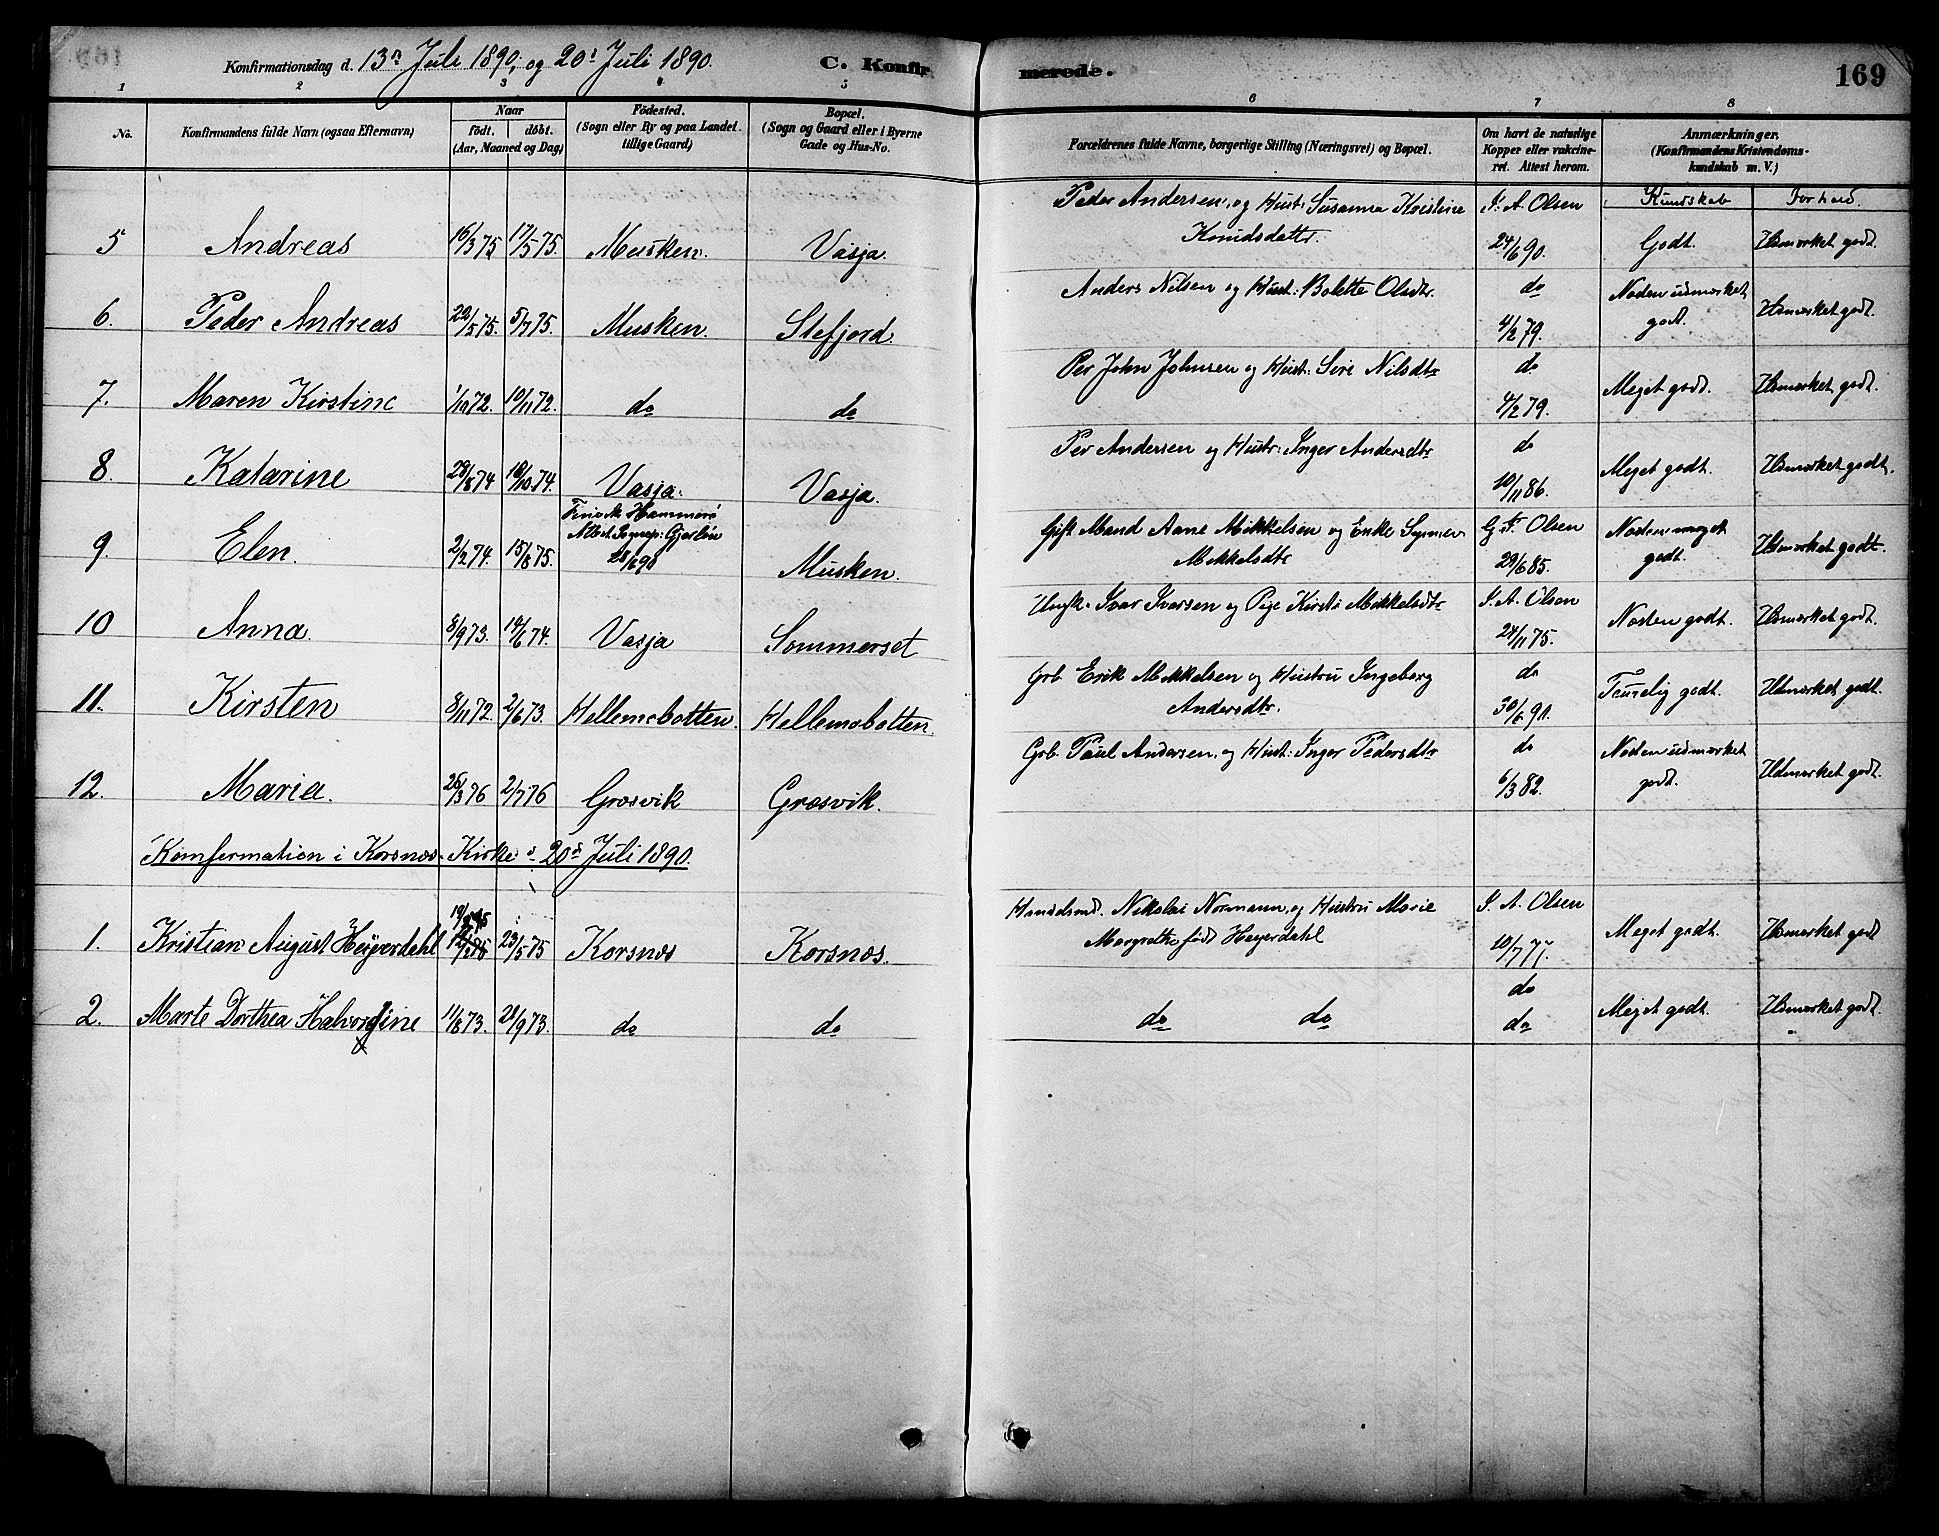 Konfirmationsdag d. 13de Juli 1890, og 20de Juli 1890. C. Konfirmerede. 169
1 2 3 4 5 6 7 8
No. Konfirmandens fulde Navn (ogsaa Efternavn) Naar født. døbt. (Aar, Maaned og Dag) Fødested. (Sogn eller By og paa Landet tillige Gaard) Bopæl. (Sogn og Gaard eller i Byerne Gade og Hus-No. Forældrenes fulde Navne, borgerlige Stilling (Næringsvei) og Bopæl. Om havt de naturlige Kopper eller vakcineret. Attest herom. Anmærkninger. (Konfirmandens Kristendomskundskab m. V.)
Kundskab Forhold.
5 Andreas 16/3 75 17/5 75. Musken. Vasja Peder Andersen, og Hust: Susanna Kristine Knudsdattr. I. A. Olsen 24/6 90. Godt. Udmærket godt.
6. Peder Andreas 22/5 75. 5/7 75. Musken. Stefjord. Anders Nilsen og Hust: Bolette Olsdtr. do 4/2 79. Næsten udmærket godt. Udmærket godt.
7. Maren Kirstine 1/10 72. 10/11 72. do do Per John Johnsen og Hust: Sire Nilsdtr do 4/2 79. Meget godt. Udmærket godt.
8. Katarine 28/8 74 18/10 74. Vasja. Vasja. Per Andersen og Hustr: Inger Andersdtr do 10/11 86. Meget godt. Udmærket godt.
9 Elen. 2/2 74. 15/8 75. Hammerø 28/6 90 Musken. Gift Mand Aane Mikkelsen og Enke Mikkelsdtr Olsen 29/6 85. Næsten meget godt. Udmærket godt.
10 Anna. 8/9 73. 14/6 74. Vasja Sommerset Ungk. Ivar Iversen og Pige Kirsti Mikkelsdtr I. A. Olsen 24/11 75. Næsten godt. Udmærket godt.
11. Kirsten 8/11 72. 2/6 73. Hellemobotten. Hellemobotten. Grb. Erik Mikkelsen og Hustru Ingeborg Andersdtr. do 30/6 90. Temelig godt. Udmærket godt.
12. Maria. 26/3 76 2/7 76 Græsvik Græsvik. Grb. Paul Andersen, og Hust: Inger Pedersdtr do 6/3 82. Næsten udmærket godt. Udmærket godt.
Konfermation i Korsnæs Kirke d. 20de Juli 1890.
1. Kristian August Heyerdahl 23/5 75 Korsnæs Korsnæs. Handelsmd. Nikolai Normann, og Hustru Marie Margrethe født Heyerdahl I. A. Olsen 10/7 77. Meget godt. Udmærket godt
2. Marte Dorthea Halvordine 11/8 73. 28/9 73. do do do do do do Meget godt. Udmærket godt.